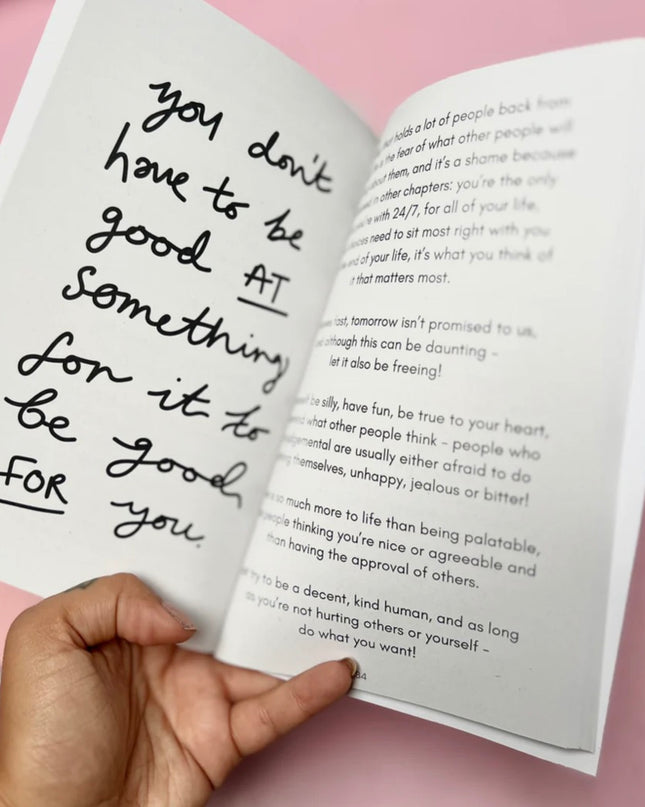 you don't
have to be
good AT
something
for it to
be good
FOR you.
holds a lot of people back from
is the fear of what other people will
about them, and it's a shame because
in other chapters: you're the only
you're with 24/7, for all of your life.
need to sit most right with you
end of your life, it's what you think of
it that matters most.
fast, tomorrow isn't promised to us,
although this can be daunting –
let it also be freeing!
be silly, have fun, be true to your heart,
what other people think – people who
are usually either afraid to do
themselves, unhappy, jealous or bitter!
so much more to life than being palatable,
people thinking you're nice or agreeable and
than having the approval of others.
try to be a decent, kind human, and as long
as you're not hurting others or yourself –
do what you want!
84